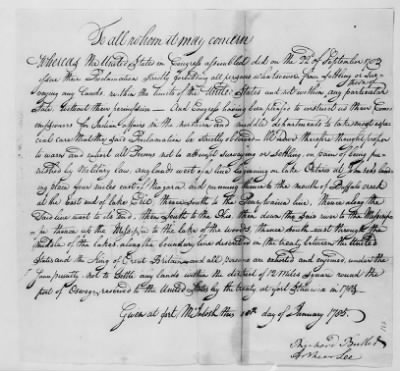 To all whom it may concern
Whereas the United States in Congress assembled did on the 22d of September 1783
issue their Proclamation strictly forbidding all persons whatsoever from settling or Sur
veying any Lands, within the limits of the United States and not within any particular
State, without their permission — And Congress having been pleased to instruct us their Com
missioners for Indian affairs in the northern and middle departments to take most espe
cial care that the said Proclamation be strictly observed — We have therefore thought proper
to warn and enjoin all Persons not to attempt surveying or settling, on pain of being pu
nished by Military law, any Lands west of a line beginning on lake Ontario at Johnsons land
ing place four miles east of Niagara and running thence to the mouth of Buffaloe creek
at the East end of lake Erie, thence south to the Pennsylvania line, thence along the
Said line west to its End, then South to the Ohio, then down the said river to the Mississip
pi thence up the Mississipi to the lake of the woods, thence south east through the
middle of the lakes along the boundary line described in the treaty between the United
States and the King of Great Britain — and all persons are cautioned and enjoined, under the
same penalty not to Settle any lands within the district of 12 miles square round the
port of Oswego, reserved to the United States by the treaty at fort Stanwix in 1784
Given at fort McIntosh this day of January 1785.
Richard Butler
Arthur Lee